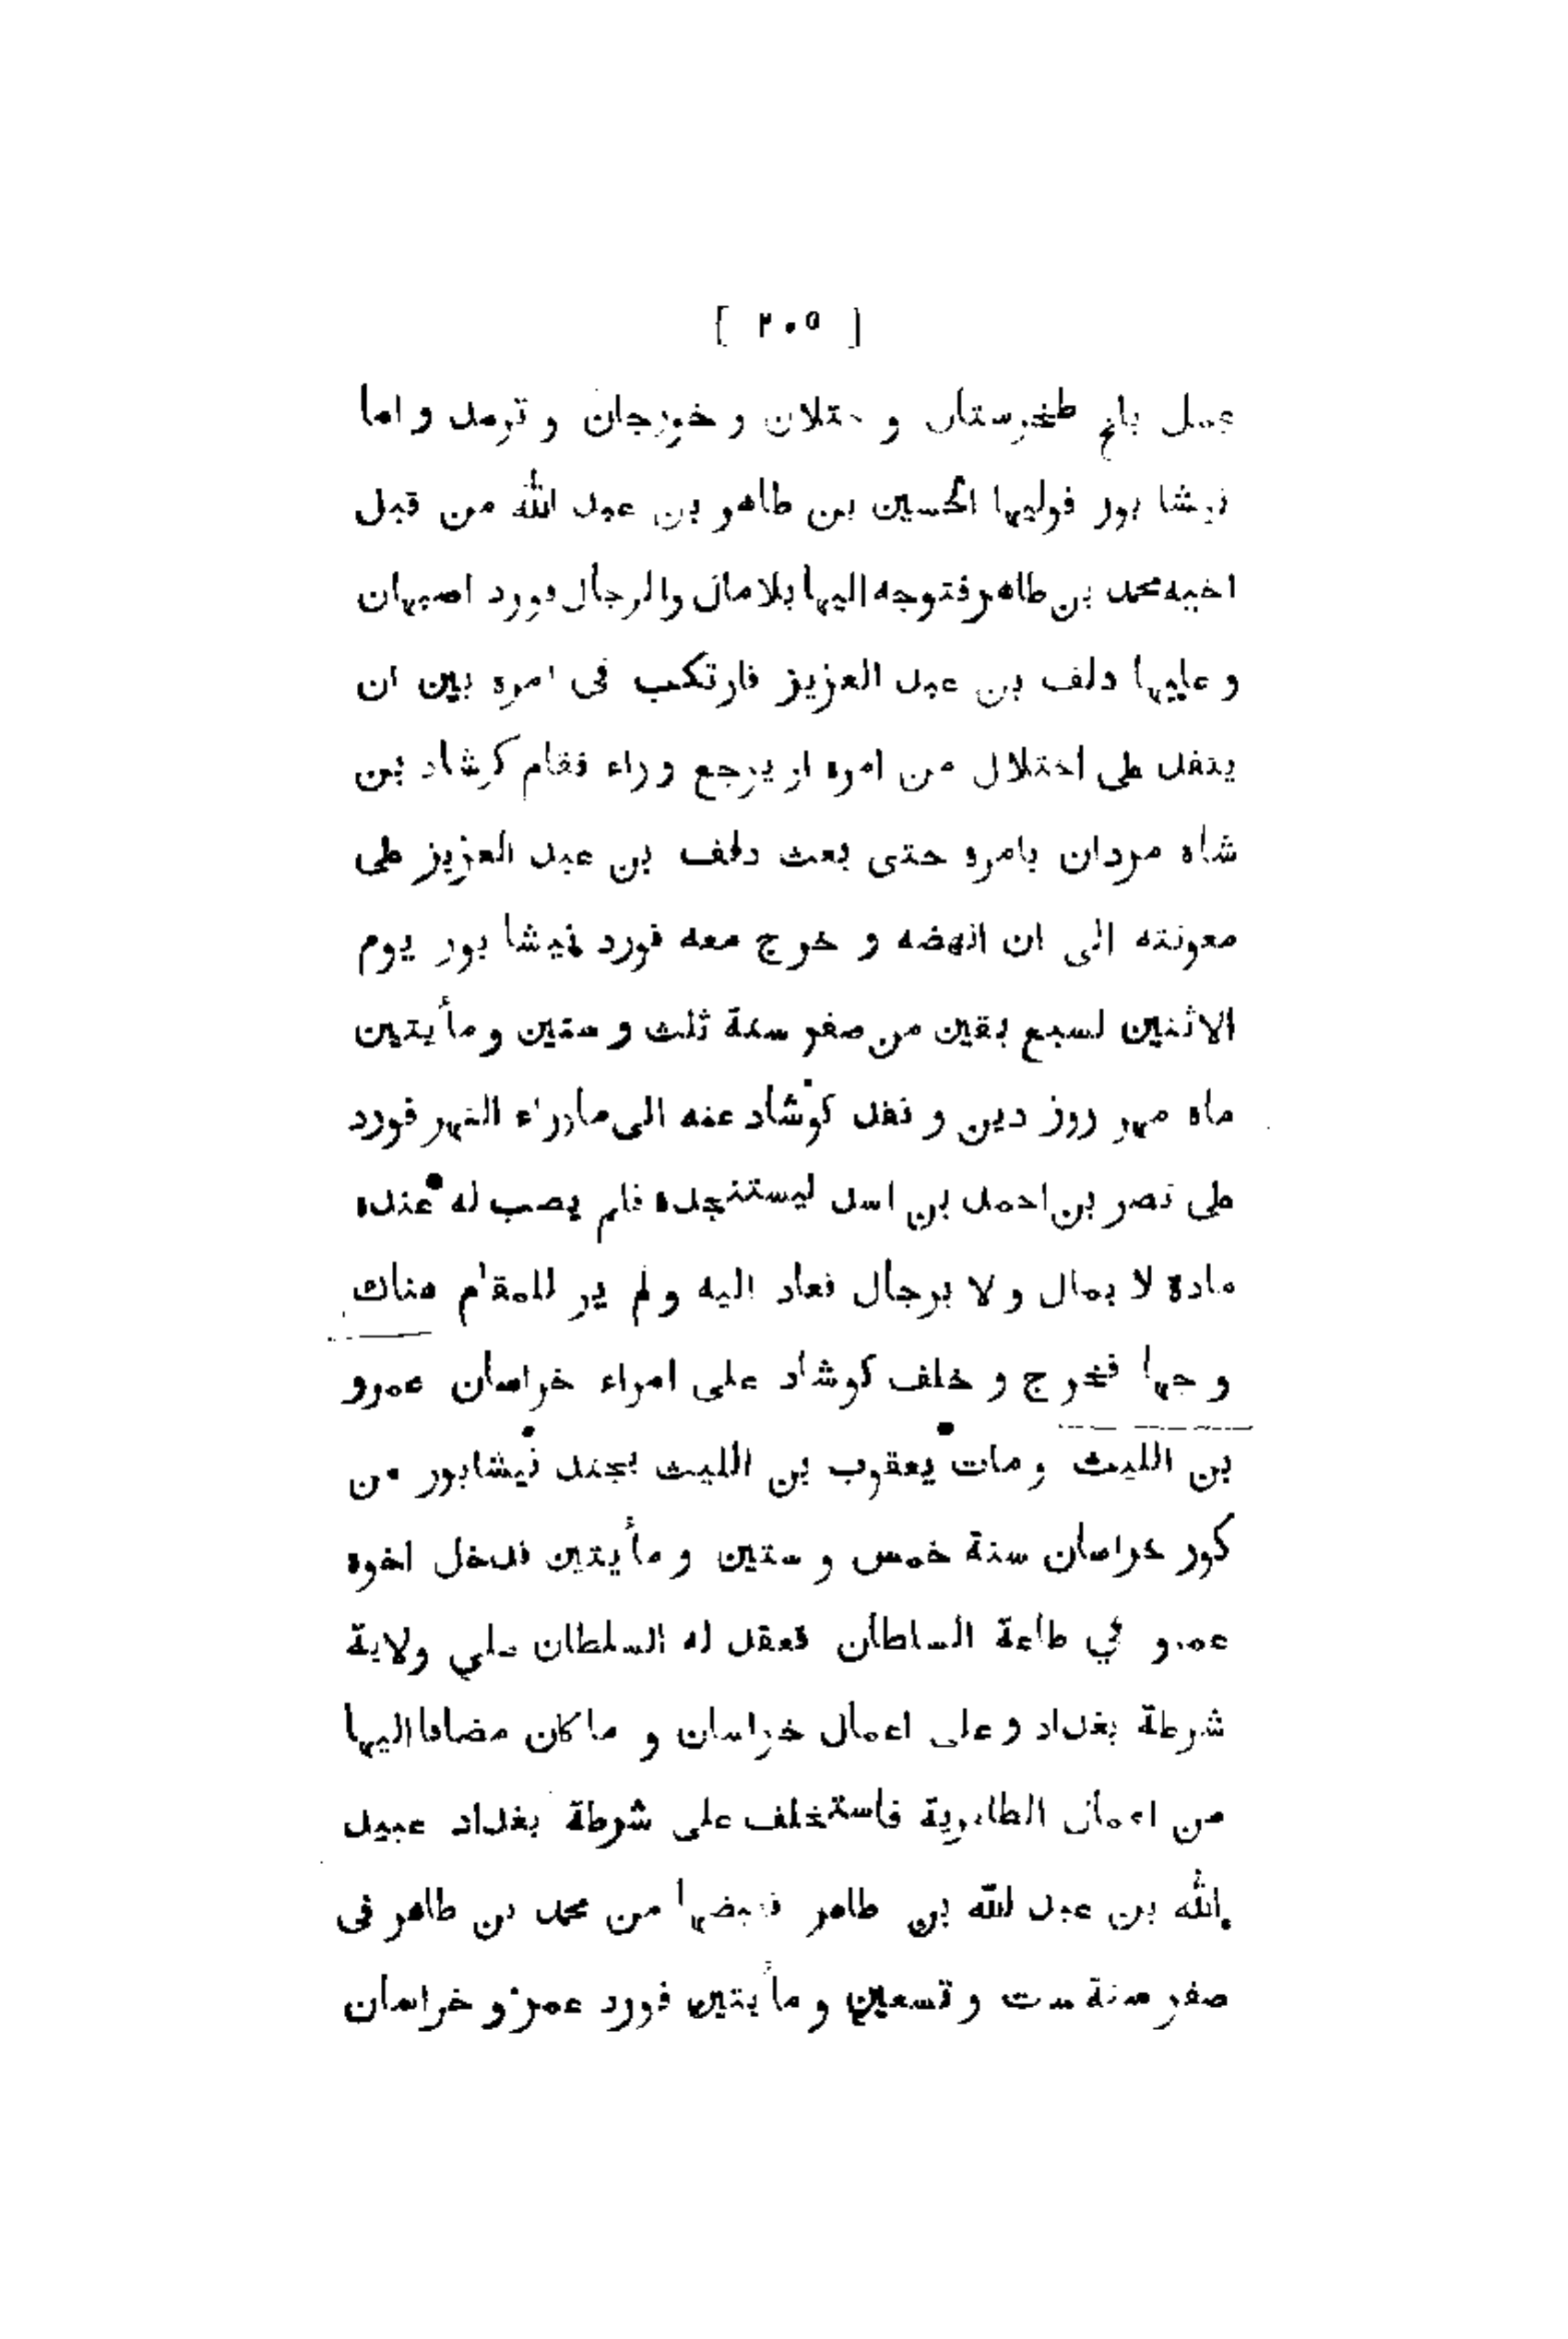 [ ٢٠٥ ]
عمل بلخ طخرستان و ختلان و خورجان و ترمد و اما
نيشا بور فوليها الحسين بن طاهر بن عبد الله من قبل
اخيه محمد بن طاهر فتوجه اليها بلامال والرجال فورد اصبهان
و عليها دلف بن عبد العزيز فارتكب فى امره بين ان
ينفذ على اختلال من امره او يرجع وراء فقام كوشاد بن
شاه مردان بامره حتى بعث دلف بن عبد العزيز على
معونته الى ان انهضه و خرج معه فورد نيشا بور يوم
الاثنين لسبع بقين من صفر سنة ثلث و ستين و مأيتين
ماه مهر روز دين و نفذ كوشاد عنه الى ماوراء النهر فورد
على نصر بن احمد بن اسد ليستنجده فلم يصب له عنده
مادة لا بمال و لا برجال فعاد اليه و لم ير للمقام هناك
وجها فخرج و خلف كوشاد على امراء خراسان عمرو
بن الليث و مات يعقوب بن الليث بجند نيشابور من
كور خراسان سنة خمس و ستين و مأيتين فدخل اخوه
عمرو في طاعة السلطان فعقد له السلطان علي ولاية
شرطة بغداد و على اعمال خراسان و ما كان مضافا اليها
من اعمال الطاهرية فاستخلف على شرطة بغداد عبيد
الله بن عبد لله بن طاهر فقبضها من محمد بن طاهر فى
صفر سنة ست و تسعين و مأيتين فورد عمرو خراسان